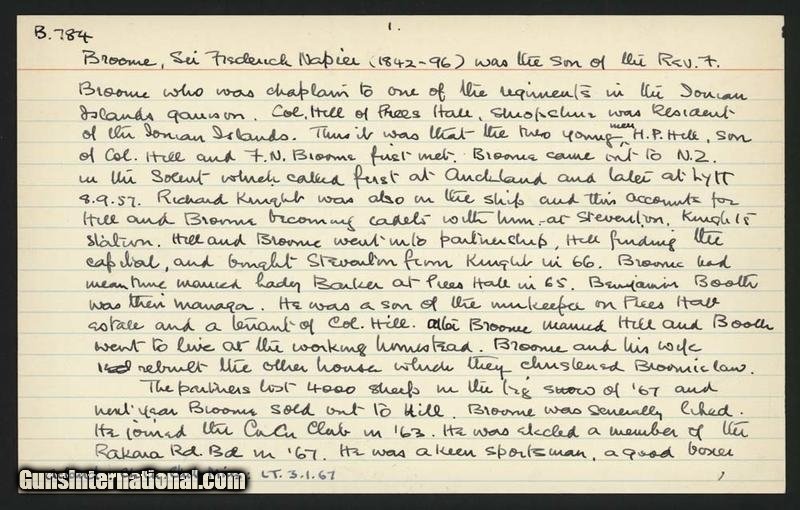 B.784
1.
Broome, Sir Frederick Napier (1842-96) was the son of the Rev. F.
Broome who was chaplain to one of the regiments in the Ionian
Islands garrison. Col. Hill of Prees Hall, Shropshire was Resident
of the Ionian Islands. Thus it was that the two young men, H.P. Hill, son
of Col. Hill and F.N. Broome first met. Broome came out to N.Z.
in the Solent which called first at Auckland and later at Lytt
8.9.57. Richard Knight was also in the ship and this accounts for
Hill and Broome becoming cadets with him at Steventon, Knights
station. Hill and Broome went into partnership, Hill finding the
capital, and bought Steventon from Knight in 66. Broome had
meantime married Lady Barker at Prees Hall in 65. Benjamin Booth
was their manager. He was a son of the innkeeper on Prees Hall
estate and a tenant of Col. Hill. After Broome married Hill and Booth
went to live at the working homestead. Broome and his wife
rebuilt the other house which they christened Broomielaw.
The partners lost 4000 sheep in the big snow of '67 and
next year Broome sold out to Hill. Broome was generally liked.
He joined the CuCu Club in '63. He was elected a member of the
Rakaia Rd. Bd in '67. He was a keen sportsman, a good boxer
LT. 3.1.67
GunsInternational.com